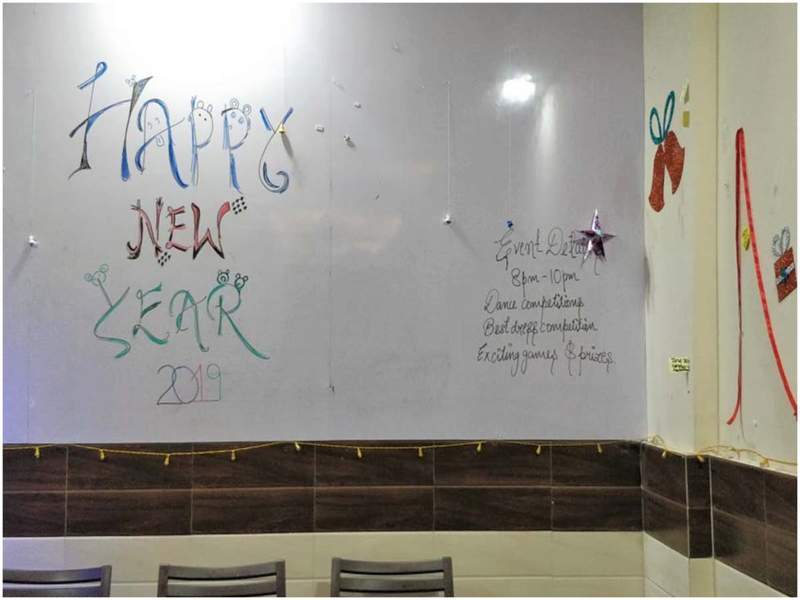 HAPPY
NEW
YEAR
2019
Event Detai
8pm-10pm
Dance competitions
Best dress competition
Exciting games & prizes